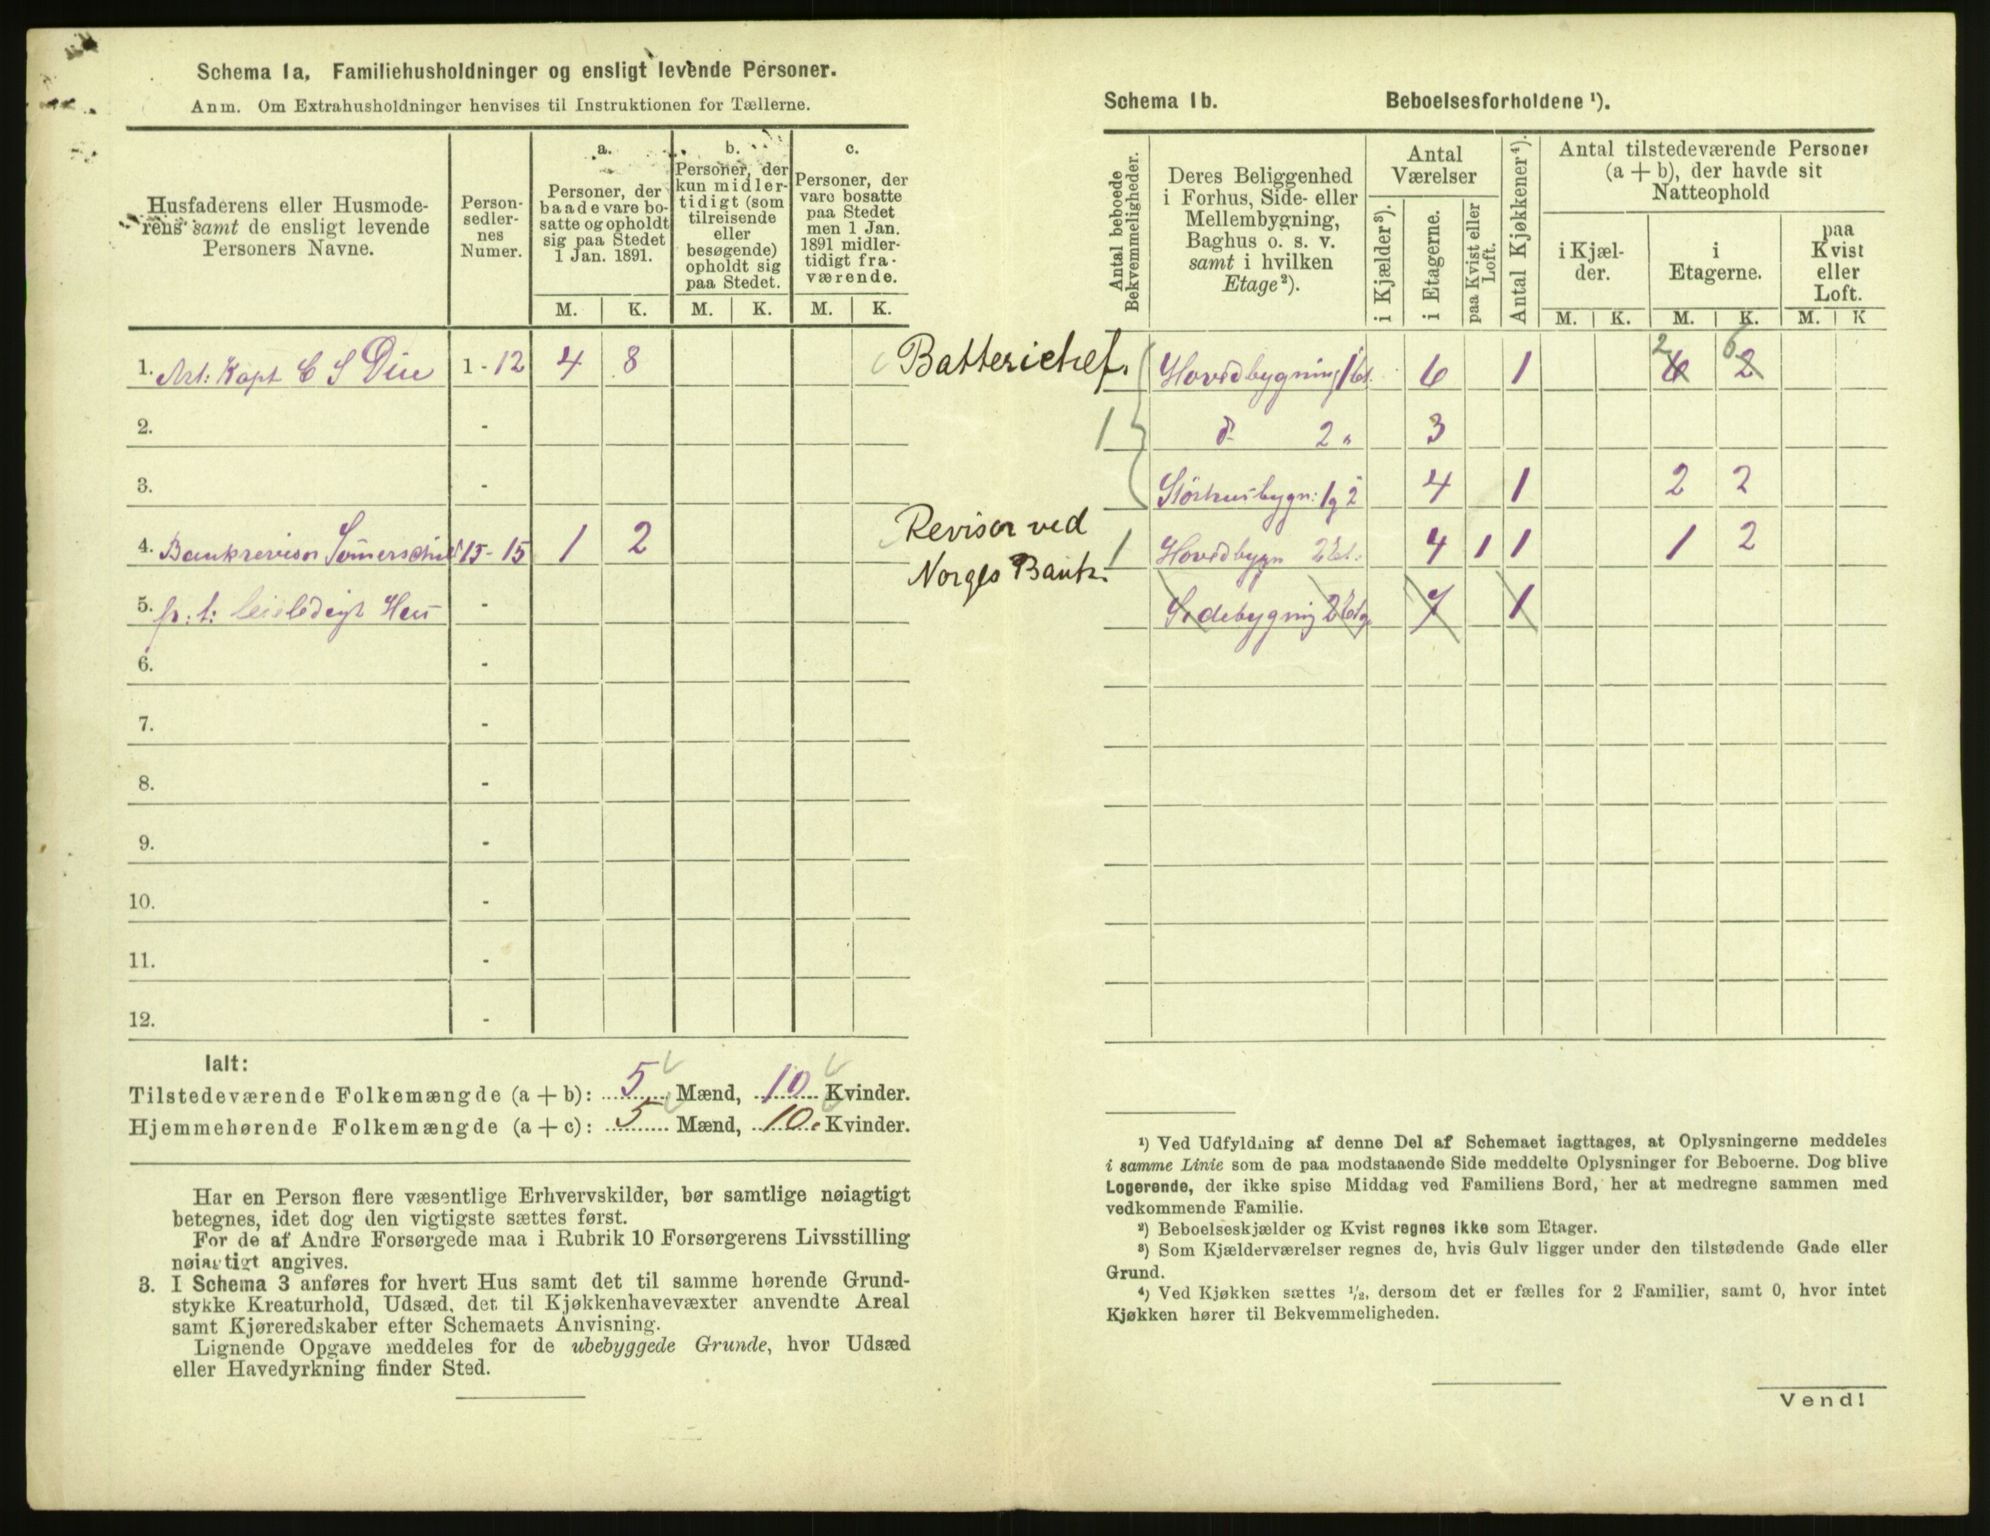 Schema 1a, Familiehusholdninger og ensligt levende Personer.
Anm. Om Extrahusholdninger henvises til Instruktionen for Tællerne.
Husfaderens eller Husmode-
rens samt de ensligt levende
Personers Navne.
Person-
sedler-
nes
Numer.
a.
Personer, der
baade vare bo-
satte og opholdt
sig paa Stedet
1 Jan. 1891.
b.
Personer, der
kun midler-
tidigt (som
tilreisende
eller
besøgende)
opholdt sig
paa Stedet.
c.
Personer, der
vare bosatte
paa Stedet
men 1 Jan.
1891 midler-
tidigt fra-
værende.
M. K. M. K. M. K.
1. Art: Kapt C S Due 1 - 12 4 8
2. -
3. -
4. Bankrevisor Sømerschild 13 - 15 1 2
5. p. t: leieledigt Hus -
6. -
7. -
8. -
9. -
10. -
11. -
12. -
Ialt:
Tilstedeværende Folkemængde (a + b): 5 Mænd, 10 Kvinder.
Hjemmehørende Folkemængde (a + c): 5 Mænd, 10 Kvinder.
Har en Person flere væsentlige Erhvervskilder, bør samtlige nøiagtigt
betegnes, idet dog den vigtigste sættes først.
For de af Andre Forsørgede maa i Rubrik 10 Forsørgerens Livsstilling
nøiagtigt angives.
3. I Schema 3 anføres for hvert Hus samt det til samme hørende Grund-
stykke Kreaturhold, Udsæd, det til Kjøkkenhavevæxter anvendte Areal
samt Kjøreredskaber efter Schemaets Anvisning.
Lignende Opgave meddeles for de ubebyggede Grunde, hvor Udsæd
eller Havedyrkning finder Sted.
Batterichef.
Revisor ved
Norges Bank.
Schema 1b. Beboelsesforholdene ¹).
Antal beboede
Bekvemmeligheder.
Deres Beliggenhed
i Forhus, Side- eller
Mellembygning,
Baghus o. s. v.
samt i hvilken
Etage²).
Antal
Værelser
i Kjælder³).
i Etagerne.
paa Kvist eller
Loft.
Antal Kjøkkener⁴).
Antal tilstedeværende Personer
(a + b), der havde sit
Natteophold
i Kjæl-
der.
i
Etagerne.
paa
Kvist
eller
Loft.
M. K. M. K. M. K
Hovedbygning 1 et. 6 1 2 6 6 2
1 do 2 " 3
Størhusbygn: 1 og 2 4 1 2 2
1 Hovedbygn 2 et: 4 1 1 1 2
Sidebygning 2 etg. 7 1
¹) Ved Udfyldning af denne Del af Schemaet iagttages, at Oplysningerne meddeles
i samme Linie som de paa modstaaende Side meddelte Oplysninger for Beboerne. Dog blive
Logerende, der ikke spise Middag ved Familiens Bord, her at medregne sammen med
vedkommende Familie.
²) Beboelseskjælder og Kvist regnes ikke som Etager.
³) Som Kjælderværelser regnes de, hvis Gulv ligger under den tilstødende Gade eller
Grund.
⁴) Ved Kjøkken sættes ½, dersom det er fælles for 2 Familier, samt 0, hvor intet
Kjøkken hører til Bekvemmeligheden.
Vend!